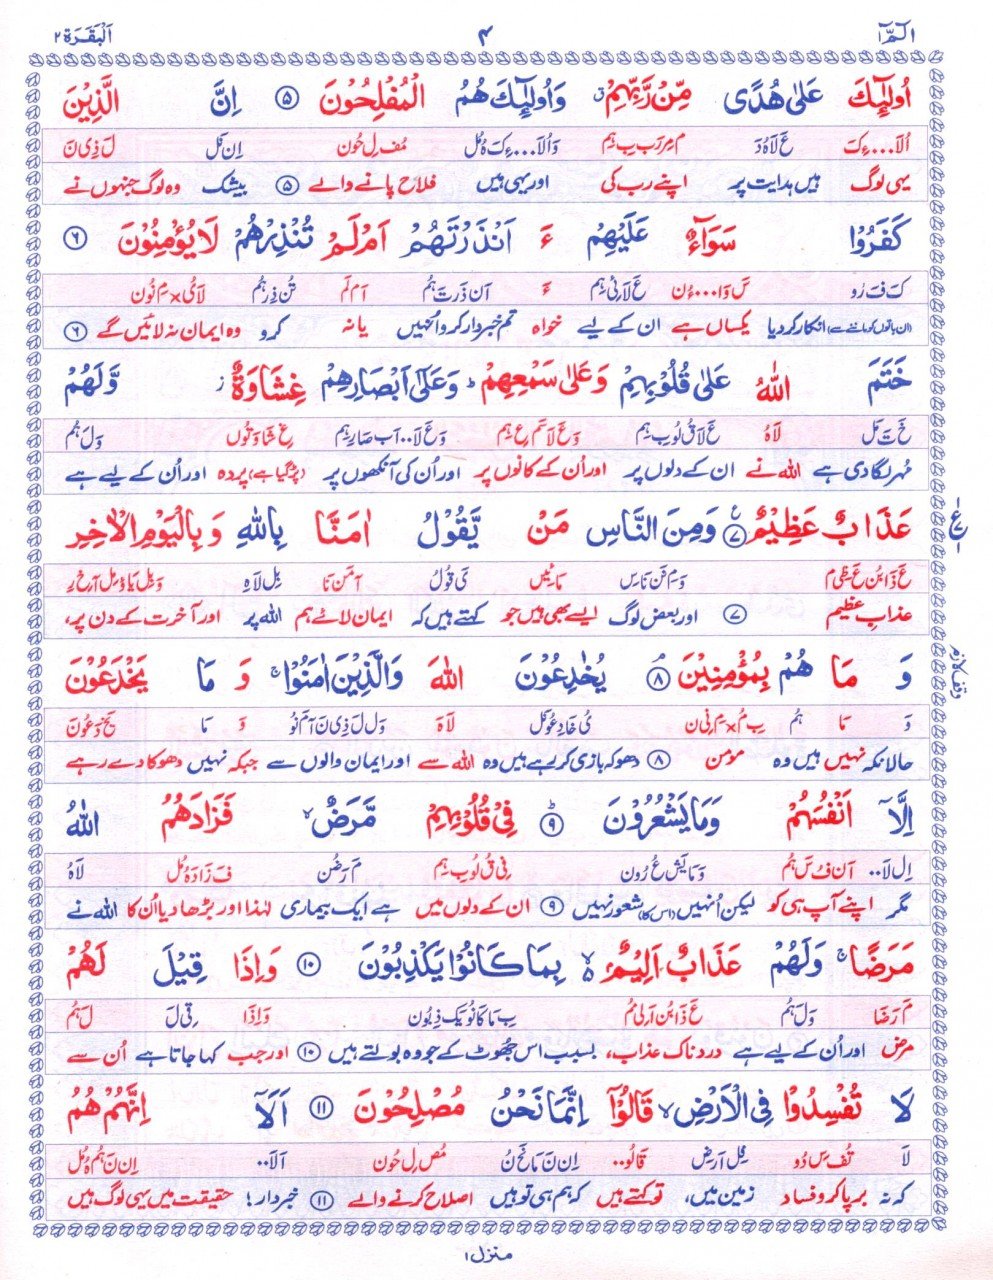 الٓمّٓ ۱ ۴ اَلْبَقَرَة ۲
اُولٰٓئِكَ عَلٰی هُدًی مِّنْ رَّبِّهِمْ ۙ وَاُولٰٓئِكَ هُمُ الْمُفْلِحُوْنَ ۵ اِنَّ الَّذِیْنَ
اُلَا...ءِکَ عَ لَا ہُ دَ مِ مِررَبِ بِ ہِم وَ اُلَا...ءِکَ ہُ مُل مُفلِ حُون اِن نَل لَ ذِی نَ
یہی لوگ ہیں ہدایت پر اپنے رب کی اور یہی ہیں فلاح پانے والے ۵ بیشک وہ لوگ جنہوں نے
كَفَرُوْا سَوَآءٌ عَلَیْهِمْ ءَ اَنْذَرْتَهُمْ اَمْ لَمْ تُنْذِرْهُمْ لَا یُؤْمِنُوْنَ ۶
کَ فَ رُو سَ وَا...ءُن عَ لَائِ ہِم ءَ اَن ذَرتَ ہُم اَم لَم تُن ذِرہُم لَا یُ × مِ نُون
(ان باتوں کو ماننے سے) انکار کردیا یکساں ہے ان کے لیے خواہ تم خبردار کرو انہیں یا نہ کرو وہ ایمان نہ لائیں گے ۶
خَتَمَ اللّٰهُ عَلٰی قُلُوْبِهِمْ وَعَلٰی سَمْعِهِمْ ؕ وَعَلٰۤی اَبْصَارِهِمْ غِشَاوَةٌ ؗ وَّلَهُمْ
خَ تَ مَل لَاہُ عَ لَا قُ لُوبِ ہِم وَعَ لَا سَم عِ ہِم وَعَ لَا.. اَب صَارِہِم غِ شَا وَتُوں وَلَ ہُم
مُہر لگا دی ہے اللہ نے ان کے دلوں پر اور اُن کے کانوں پر اور اُن کی آنکھوں پر (پڑ گیا ہے) پردہ اور اُن کے لیے ہے
عَذَابٌ عَظِیْمٌ ۷ وَمِنَ النَّاسِ مَنْ یَّقُوْلُ اٰمَنَّا بِاللّٰهِ وَبِالْیَوْمِ الْاٰخِرِ
عَ ذَا بُن عَ ظِی م وَمِ نَن نَاسِ مَاںیں یَ قُولُ آ مَن نَا بِل لَاہِ وَبِل یَاؤمِل آخِ رِ
عذاب عظیم ۷ اور بعض لوگ ایسے بھی ہیں جو کہتے ہیں کہ ایمان لائے ہم اللہ پر اور آخرت کے دن پر،
وَ مَا هُمْ بِمُؤْمِنِیْنَ ۘ ۸ یُخٰدِعُوْنَ اللّٰهَ وَالَّذِیْنَ اٰمَنُوْا ۚ وَ مَا یَخْدَعُوْنَ
وَ مَا ہُم بِ مُ × مِ نِی ن یُ خَا دِعُونَل لَاہَ وَل لَ ذِی نَ آ مَ نُو وَ مَا یَخ دَعُونَ
حالانکہ نہیں ہیں وہ مومن ۸ دھوکہ بازی کر رہے ہیں وہ اللہ سے اور ایمان والوں سے جبکہ نہیں دھوکا دے رہے
اِلَّاۤ اَنْفُسَهُمْ وَمَا یَشْعُرُوْنَ ۹ فِیْ قُلُوْبِهِمْ مَّرَضٌ ۙ فَزَادَهُمُ اللّٰهُ
اِل لَا.. اَن فُ سَ ہُم وَمَا یَش عُ رُون فِی قُ لُوبِ ہِم مَ رَضُن فَ زَادَہُ مُل لَاہُ
مگر اپنے آپ ہی کو لیکن اُنہیں (اس کا) شعور نہیں ۹ ان کے دلوں میں ہے ایک بیماری لہٰذا اور بڑھا دیا اُن کا اللہ نے
مَرَضًا ۚ وَلَهُمْ عَذَابٌ اَلِیْمٌ ۙ۬ بِمَا كَانُوْا یَكْذِبُوْنَ ۱۰ وَاِذَا قِیْلَ لَهُمْ
مَ رَضَا وَلَ ہُم عَ ذَا بُن اَلِی مُم بِ مَا کَا نُو یَک ذِبُون وَ اِذَا قِی لَ لَ ہُم
مرض اور اُن کے لیے ہے دردناک عذاب، بسبب اس جھوٹ کے جو وہ بولتے ہیں ۱۰ اور جب کہا جاتا ہے اُن سے
لَا تُفْسِدُوْا فِی الْاَرْضِ ۙ قَالُوْۤا اِنَّمَا نَحْنُ مُصْلِحُوْنَ ۱۱ اَلَاۤ اِنَّهُمْ هُمُ
لَا تُف سِ دُو فِل اَرضِ قَالُو.. اِن نَ مَا نَح نُ مُص لِ حُون اَلَا.. اِن نَ ہُم ہُ مُل
کہ نہ برپا کرو فساد زمین میں، تو کہتے ہیں کہ ہم ہی تو ہیں اصلاح کرنے والے ۱۱ خبردار! حقیقت میں یہی لوگ ہیں
ع
وقف لازم
منزل ۱